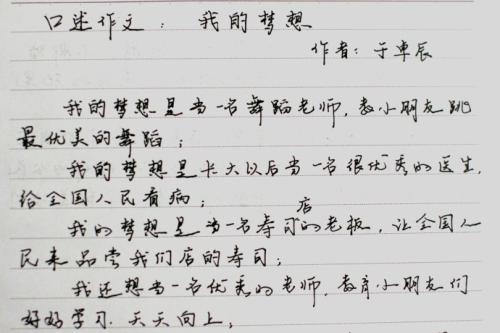 口述作文：我的梦想
作者：于卓辰
我的梦想是当一名舞蹈老师，教小朋友跳
最优美的舞蹈；
我的梦想是长大以后当一名很优秀的医生，
给全国人民看病；
我的梦想是当一名寿司店的老板，让全国人
民来品尝我们店的寿司；
我还想当一名优秀的老师，教育小朋友们
好好学习，天天向上。